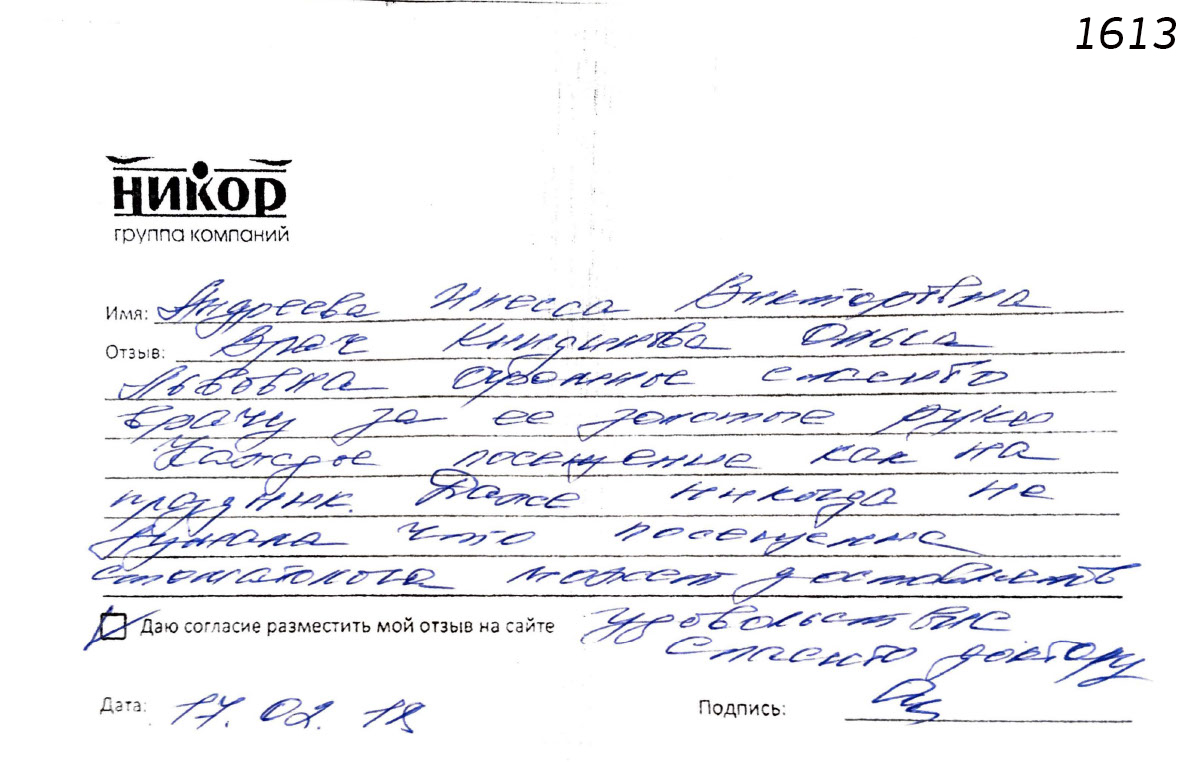 1613
НИКОР
группа компаний
Имя: Андреева Инесса Викторовна
Отзыв: Врач Ольга
Львовна огромное спасибо
врачу за ее золотые руки
Каждое посещение как на
праздник. Даже никогда не
думала что посещение
стоматолога может доставлять
Даю согласие разместить мой отзыв на сайте удовольствие
Спасибо доктору
Дата: 17.02.18 Подпись: